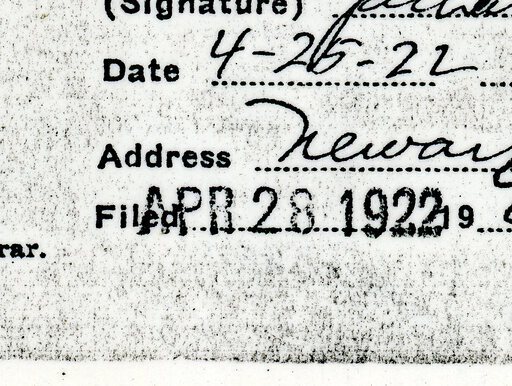 (Signature)
Date 4-25-22
Address Newark
Filed APR 28 1922 19
rar.